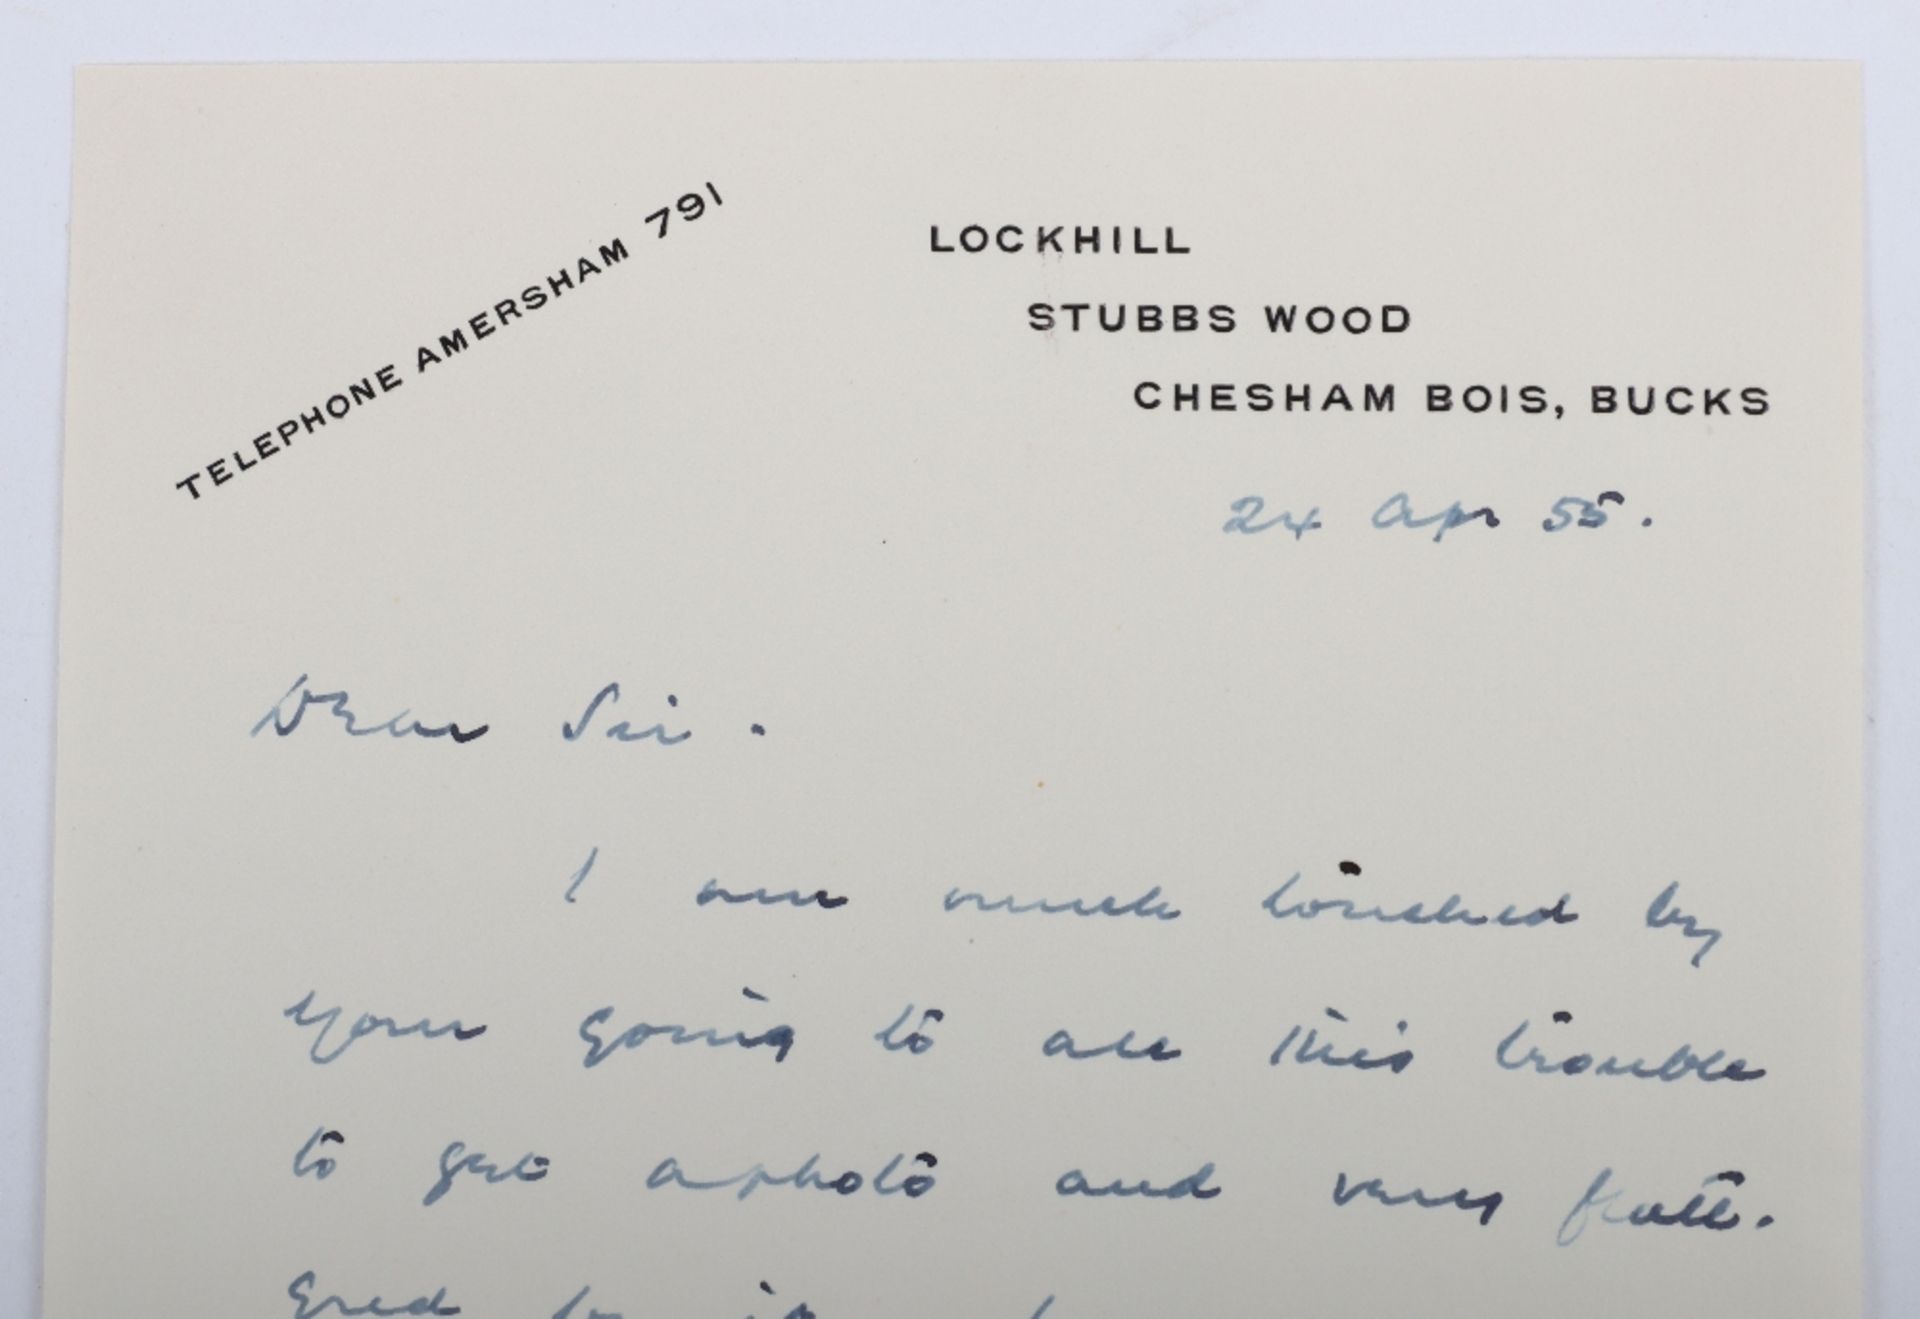 TELEPHONE AMERSHAM 791
LOCKHILL
STUBBS WOOD
CHESHAM BOIS, BUCKS
24 Apr 55.
Dear Sir.
I am much touched by
your going to all this trouble
to get a photo and very flatt-
ered by it.